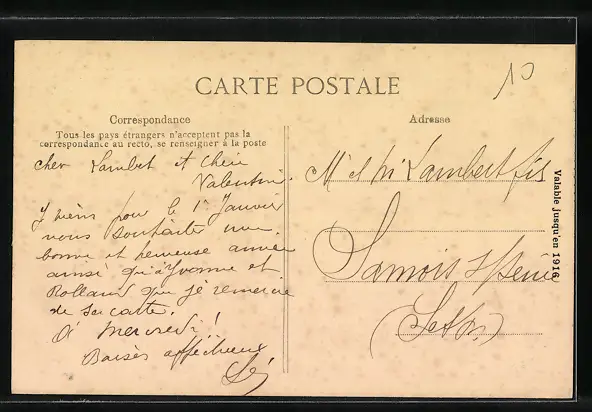 CARTE POSTALE
10
Correspondance
Tous les pays étrangers n'acceptent pas la
correspondance au recto, se renseigner à la poste
cher Lambert et Chère
Valentine.
Je viens pour le 1er Janvier
vous souhaiter une
bonne et heureuse année
ainsi qu'à Yvonne et
Rolland que je remercie
de sa carte.
à mercredi!
Baisers affectueux
Adresse
Mr et Me Lambert fils
Samois s/Seine
(Set M)
Valable jusqu'en 1916